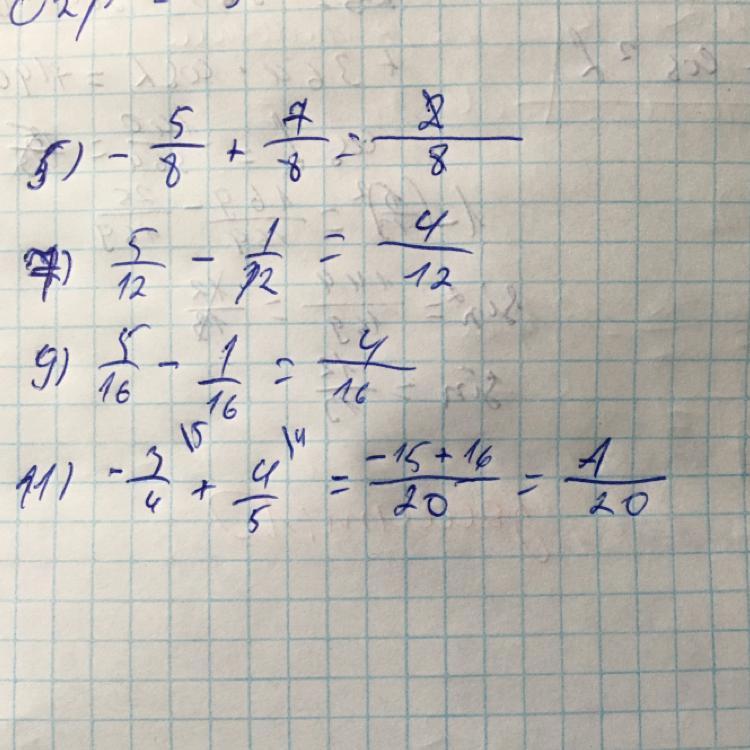 5) - 5/8 + 7/8 = 2/8
7) 5/12 - 1/12 = 4/12
9) 5/16 - 1/16 = 4/16
11) - 3/4 \5 + 4/5 \4 = -15+16/20 = 1/20